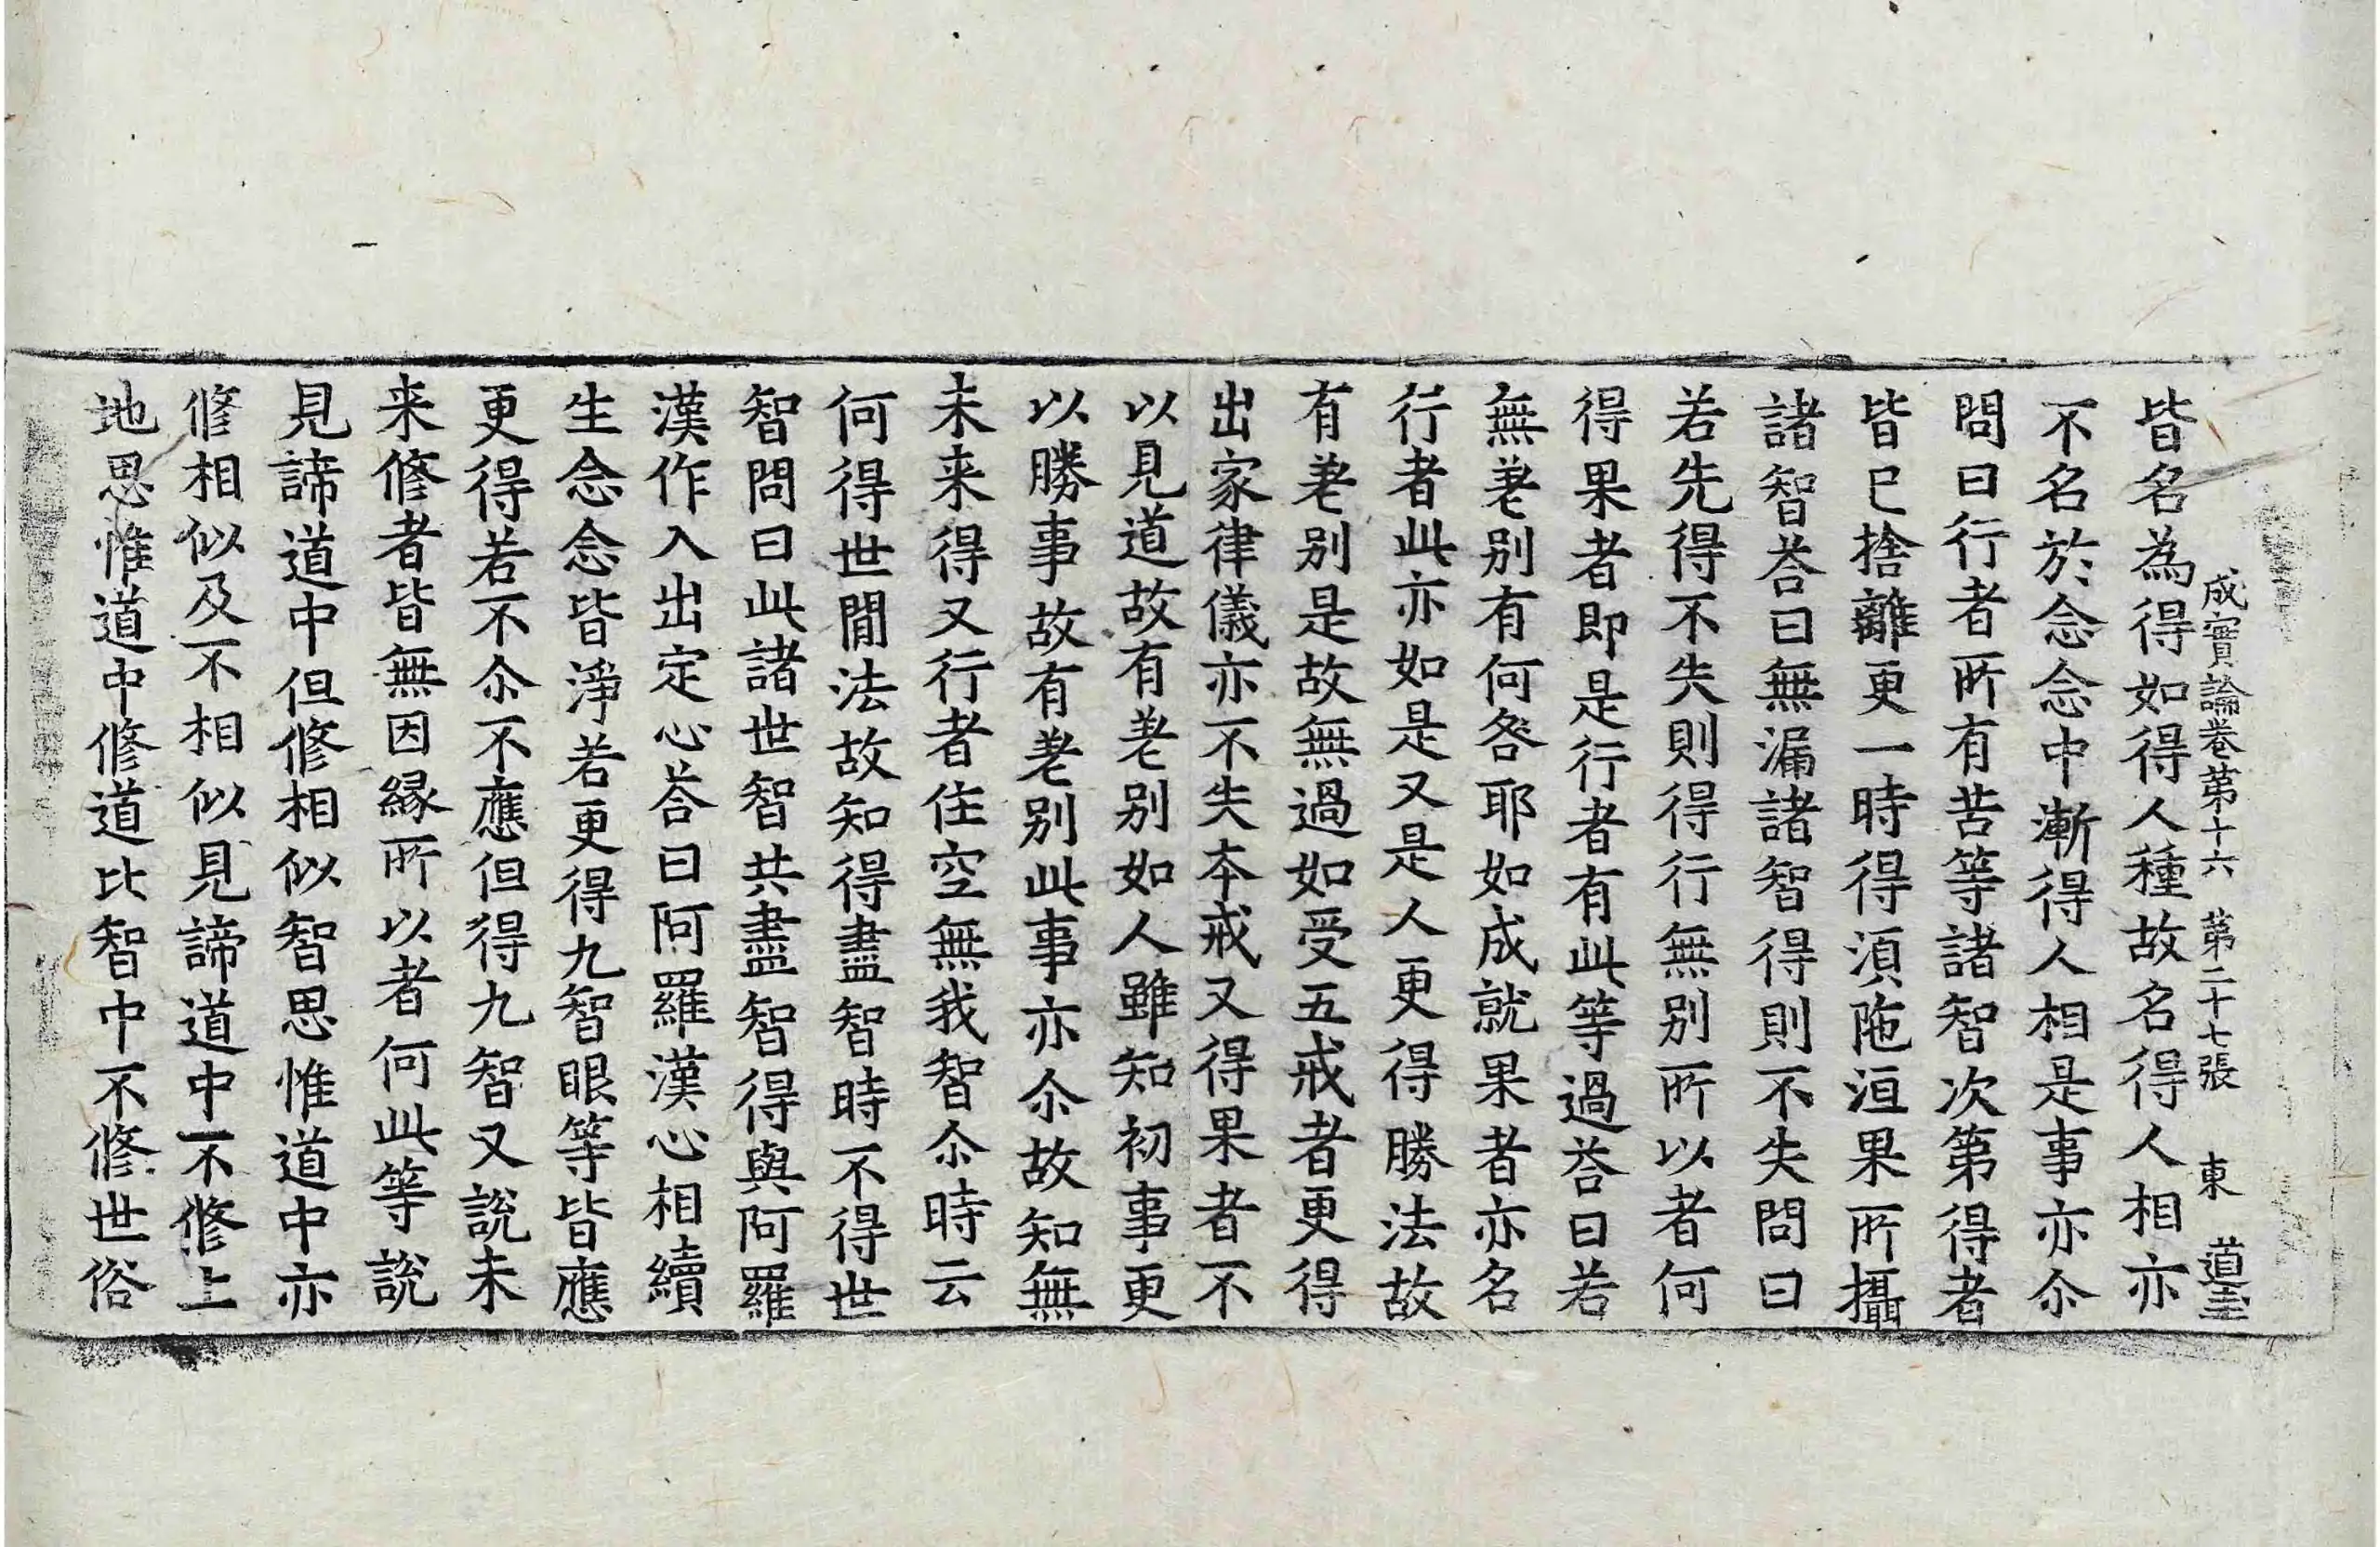 成實論卷第十六 第二十七張 東 道玄
皆名為得如得人種故名得人相亦
不名於念念中漸得人相是事亦尒
問曰行者所有苦等諸智次第得者
皆已捨離更一時得湏陁洹果所攝
諸智荅曰無漏諸智得則不失問曰
若先得不失則得行無別所以者何
得果者即是行者有此等過荅曰若
無差別有何咎耶如成就果者亦名
行者此亦如是又是人更得勝法故
有差別是故無過如受五戒者更得
出家律儀亦不失本戒又得果者不
以見道故有差別如人雖知初事更
以勝事故有差別此事亦尒故知無
未来得又行者住空無我智尒時云
何得世閒法故知得盡智時不得世
智問曰此諸世智共盡智得與阿羅
漢作入出定心荅曰阿羅漢心相續
生念念皆淨若更得九智眼等皆應
更得若不尒不應但得九智又說未
来修者皆無因緣所以者何此等說
見諦道中但修相似智思惟道中亦
修相似及不相似見諦道中不修上
地思惟道中修道比智中不修世俗